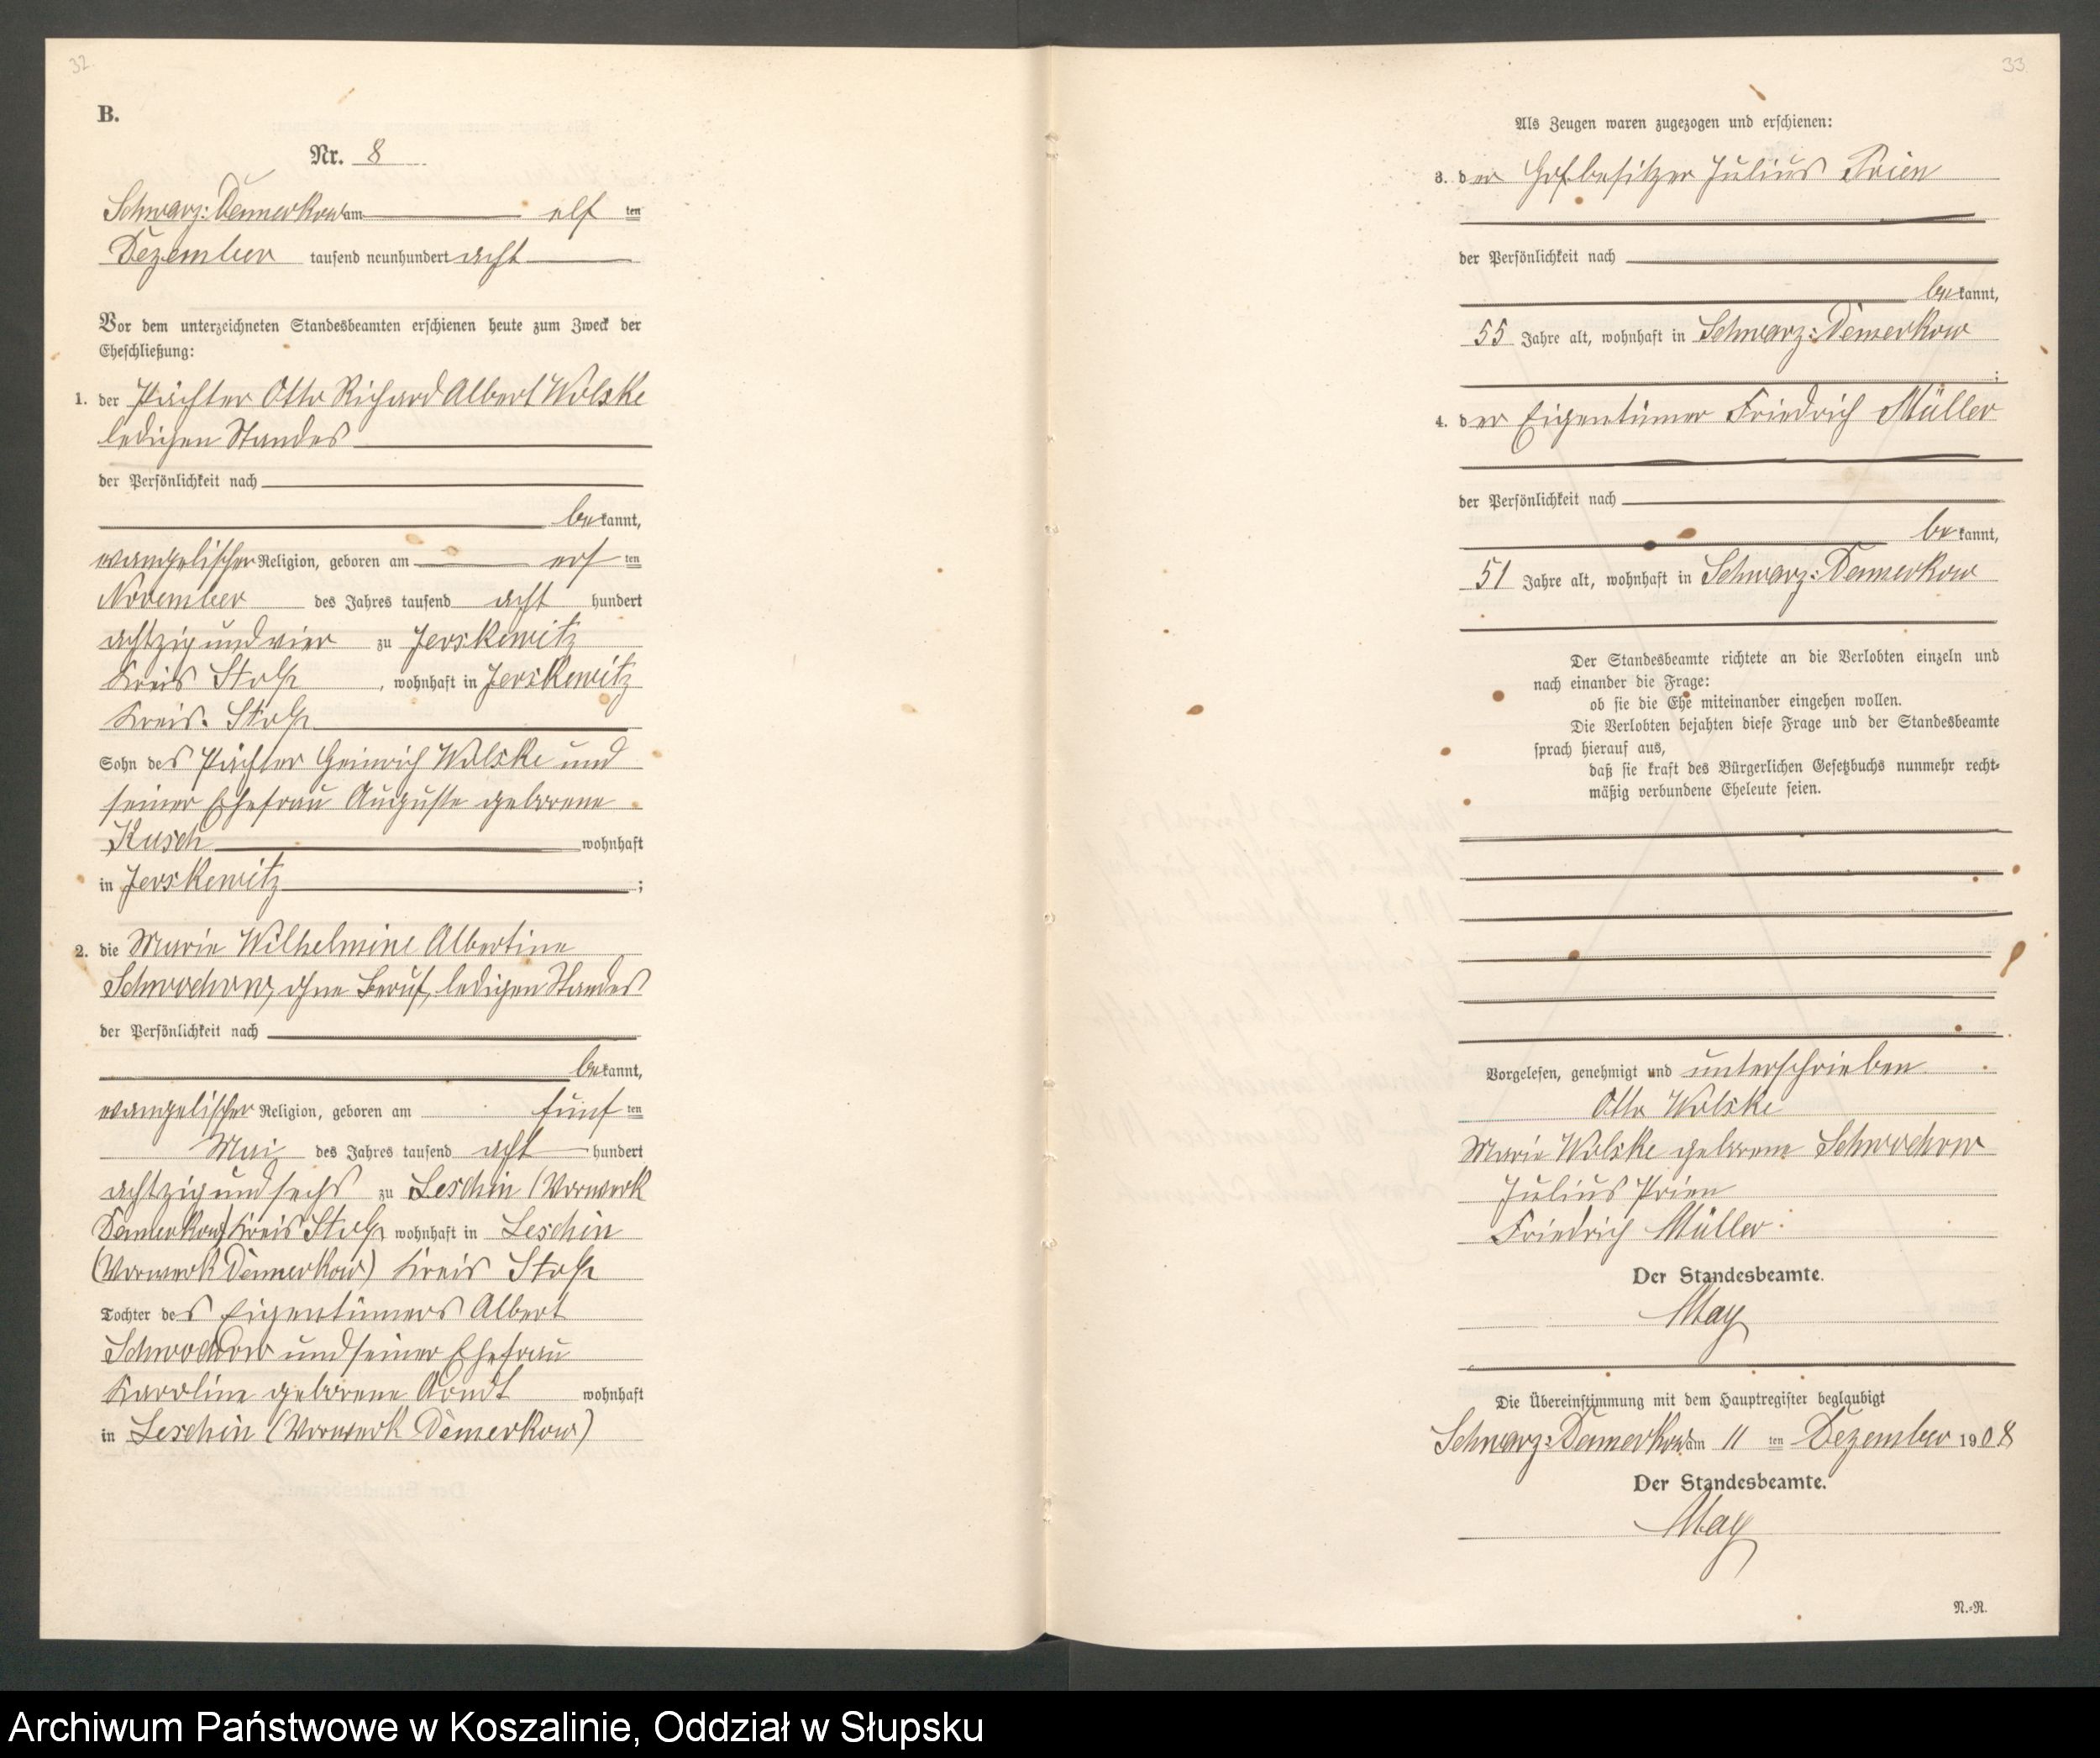 32.
B.
Nr. 8
Schwarz=Damerkow am elf ten
Dezember tausend neunhundert acht
Vor dem unterzeichneten Standesbeamten erschienen heute zum Zweck der
Eheschließung:
1. der Pächter Otto Richard Albert Wolske
ledigen Standes
der Persönlichkeit nach
bekannt,
evangelischer Religion, geboren am ten
November des Jahres tausend acht hundert
achtzig und vier zu Jerskewitz
Kreis Stolp, wohnhaft in Jerskewitz
Kreis Stolp
Sohn des Pächter Heinrich Wolske und
seiner Ehefrau Auguste geborene
Kusch wohnhaft
in Jerskewitz ;
2. die Marie Wilhelmine Albertine
Schwochow, ohne Beruf, ledigen Standes
der Persönlichkeit nach
bekannt,
evangelischer Religion, geboren am fünf ten
Mai des Jahres tausend acht hundert
achtzig und sechs zu Leschin (Vorwerk
Damerkow) Kreis Stolp wohnhaft in Leschin
(Vorwerk Damerkow) Kreis Stolp
Tochter des Eigentümers Albert
Schwochow und seiner Ehefrau
Karoline geborene Arndt wohnhaft
in Leschin (Vorwerk Damerkow)
33.
Als Zeugen waren zugezogen und erschienen:
3. der Hofbesitzer Julius Prien
der Persönlichkeit nach
bekannt,
55 Jahre alt, wohnhaft in Schwarz=Damerkow
;
4. der Eigentümer Friedrich Müller
der Persönlichkeit nach
bekannt,
51 Jahre alt, wohnhaft in Schwarz=Damerkow
Der Standesbeamte richtete an die Verlobten einzeln und
nach einander die Frage:
ob sie die Ehe miteinander eingehen wollen.
Die Verlobten bejahten diese Frage und der Standesbeamte
sprach hierauf aus,
daß sie kraft des Bürgerlichen Gesetzbuchs nunmehr recht-
mäßig verbundene Eheleute seien.
Vorgelesen, genehmigt und unterschrieben
Otto Wolske
Marie Wolske geborene Schwochow
Julius Prien
Friedrich Müller.
Der Standesbeamte.
May
Die Übereinstimmung mit dem Hauptregister beglaubigt
Schwarz=Damerkow am 11 ten Dezember 1908
Der Standesbeamte.
May
N.=R.
Archiwum Państwowe w Koszalinie, Oddział w Słupsku